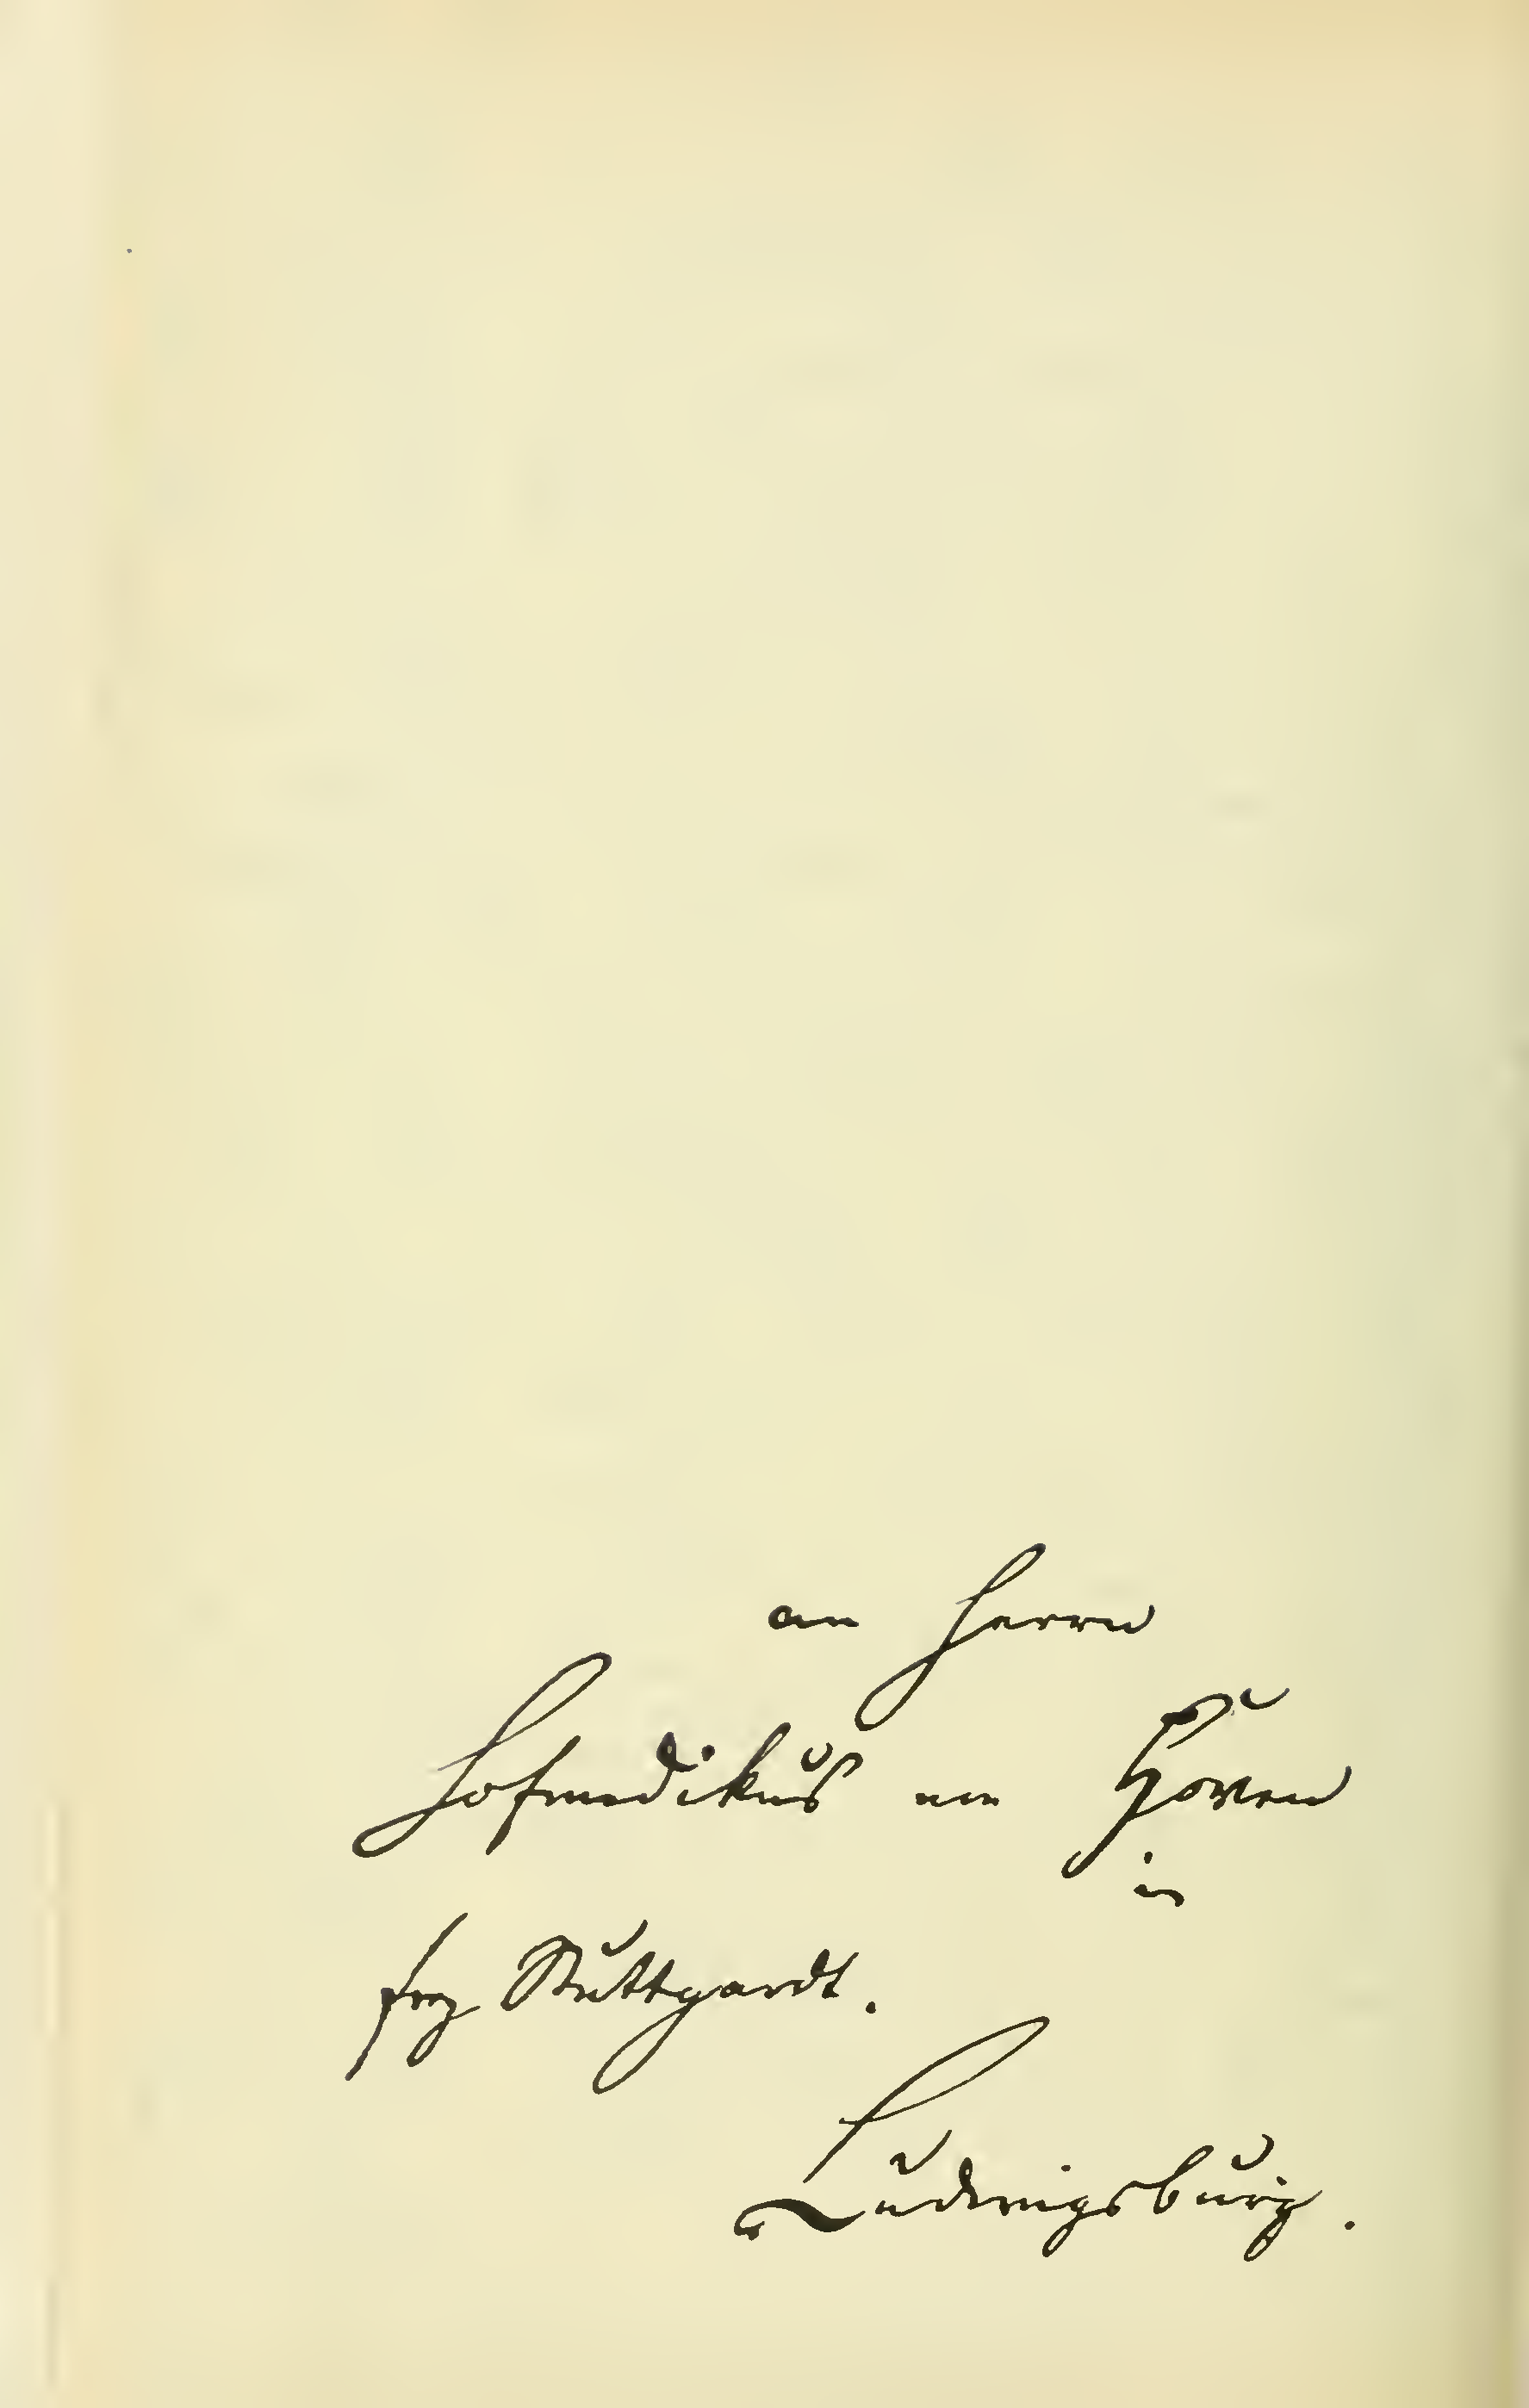 an Herrn
Hofmedikus von Hoven
in
frey Stuttgardt.
Ludwigsburg.